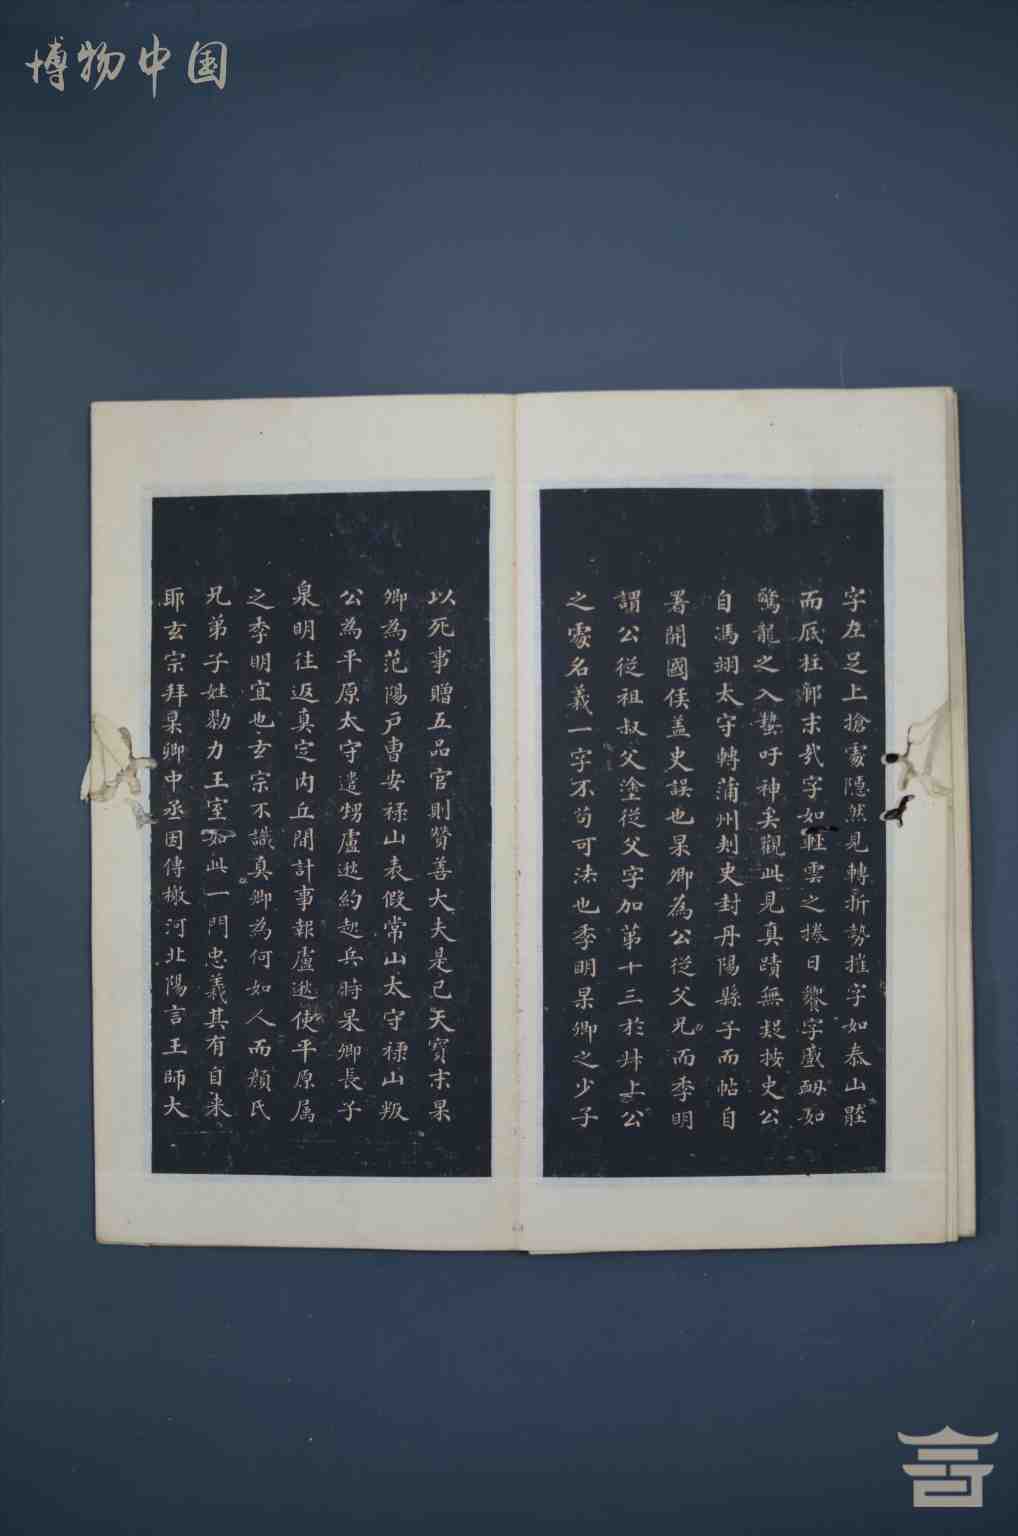 博物中国
字左足上搶處隱然見轉折勢摧字如泰山壓
而底柱鄣末哉字如輕雲之捲日饗字蹙衂如
驚龍之入蟄吁神矣觀此見真蹟無疑按史公
自馮翊太守轉蒲州刺史封丹陽縣子而帖自
署開國侯蓋史誤也杲卿為公從父兄而季明
謂公從祖叔父塗從父字加第十三於叔上公
之處名義一字不苟可法也季明杲卿之少子
以死事贈五品官則贊善大夫是已天寶末杲
卿為范陽戶曹安祿山表假常山太守祿山叛
公為平原太守遣甥盧逖約起兵時杲卿長子
泉明往返真定內丘間計事報盧逖使平原屬
之季明宜也玄宗不識真卿為何如人而顏氏
兄弟子姓勠力王室如此一門忠義其有自来
耶玄宗拜杲卿中丞因傳檄河北陽言王師大